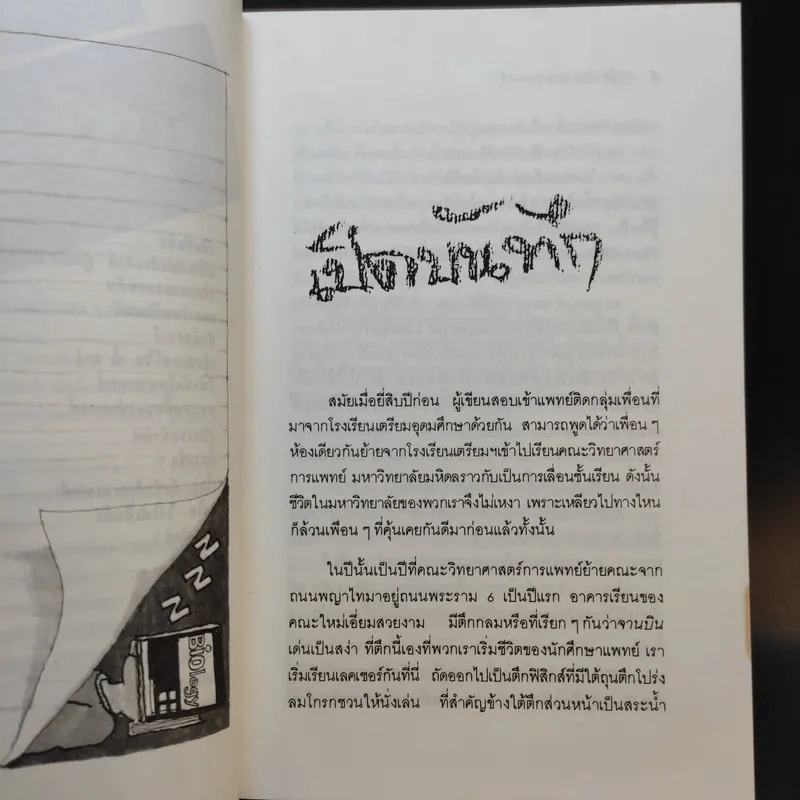 Z
Z
Z
Biology
เปิดบันทึก
สมัยเมื่อยี่สิบปีก่อน ผู้เขียนสอบเข้าแพทย์ติดกลุ่มเพื่อนที่
มาจากโรงเรียนเตรียมอุดมศึกษาด้วยกัน สามารถพูดได้ว่าเพื่อน ๆ
ห้องเดียวกันย้ายจากโรงเรียนเตรียมฯเข้าไปเรียนคณะวิทยาศาสตร์
การแพทย์ มหาวิทยาลัยมหิดลราวกับเป็นการเลื่อนชั้นเรียน ดังนั้น
ชีวิตในมหาวิทยาลัยของพวกเราจึงไม่เหงา เพราะเหลียวไปทางไหน
ก็ล้วนเพื่อน ๆ ที่คุ้นเคยกันดีมาก่อนแล้วทั้งนั้น
ในปีนั้นเป็นปีที่คณะวิทยาศาสตร์การแพทย์ย้ายคณะจาก
ถนนพญาไทมาอยู่ถนนพระราม 6 เป็นปีแรก อาคารเรียนของ
คณะใหม่เอี่ยมสวยงาม มีตึกกลมหรือที่เรียก ๆ กันว่าจานบิน
เด่นเป็นสง่า ที่ตึกนี้เองที่พวกเราเริ่มชีวิตของนักศึกษาแพทย์ เรา
เริ่มเรียนเลคเชอร์กันที่นี่ ถัดออกไปเป็นตึกฟิสิกส์ที่มีใต้ถุนตึกโปร่ง
ลมโกรกชวนให้นั่งเล่น ที่สำคัญข้างใต้ตึกส่วนหน้าเป็นสระน้ำ